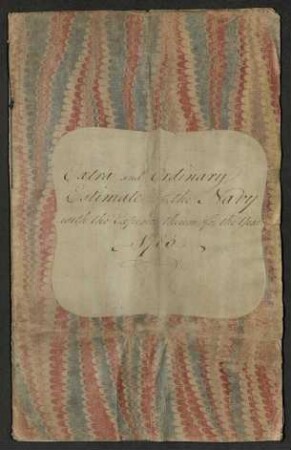 Extra and Ordinary
Estimate of the Navy
with the Expence thereon for the Year